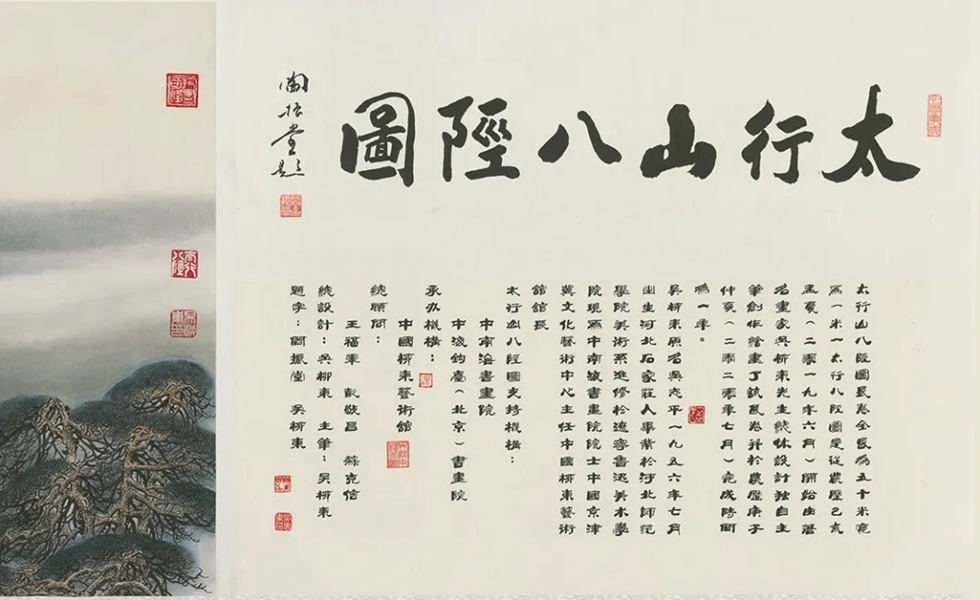 太行山八陘圖
閻振堂題
太行山八陘圖長卷全長為五十米寬
為一米一太行八陘圖是從農歷己亥
孟夏（二零一九年六月）開始由著
名畫家吳柳東先生總体設計独自主
筆創作繪畫了該長卷并於農歷庚子
仲夏（二零二零年七月）完成時間
為一年。
吳柳東原名吳志平一九五六年七月
出生河北石家莊人畢業於河北師范
學院美術系進修於遼寧書迅美术學
院現為中南海書畫院院士中國京津
冀文化藝術中心主任中國柳東藝術
館館長
太行山八陘圖支持機構：
中南海書畫院
中浚鈞臺（北京）書畫院
承办機構：
中國柳東藝術館
總顧問：
王福軍 彭敬昌 蘇克信
總設計：吳柳東 主筆：吳柳東
題字：閻振堂 吳柳東